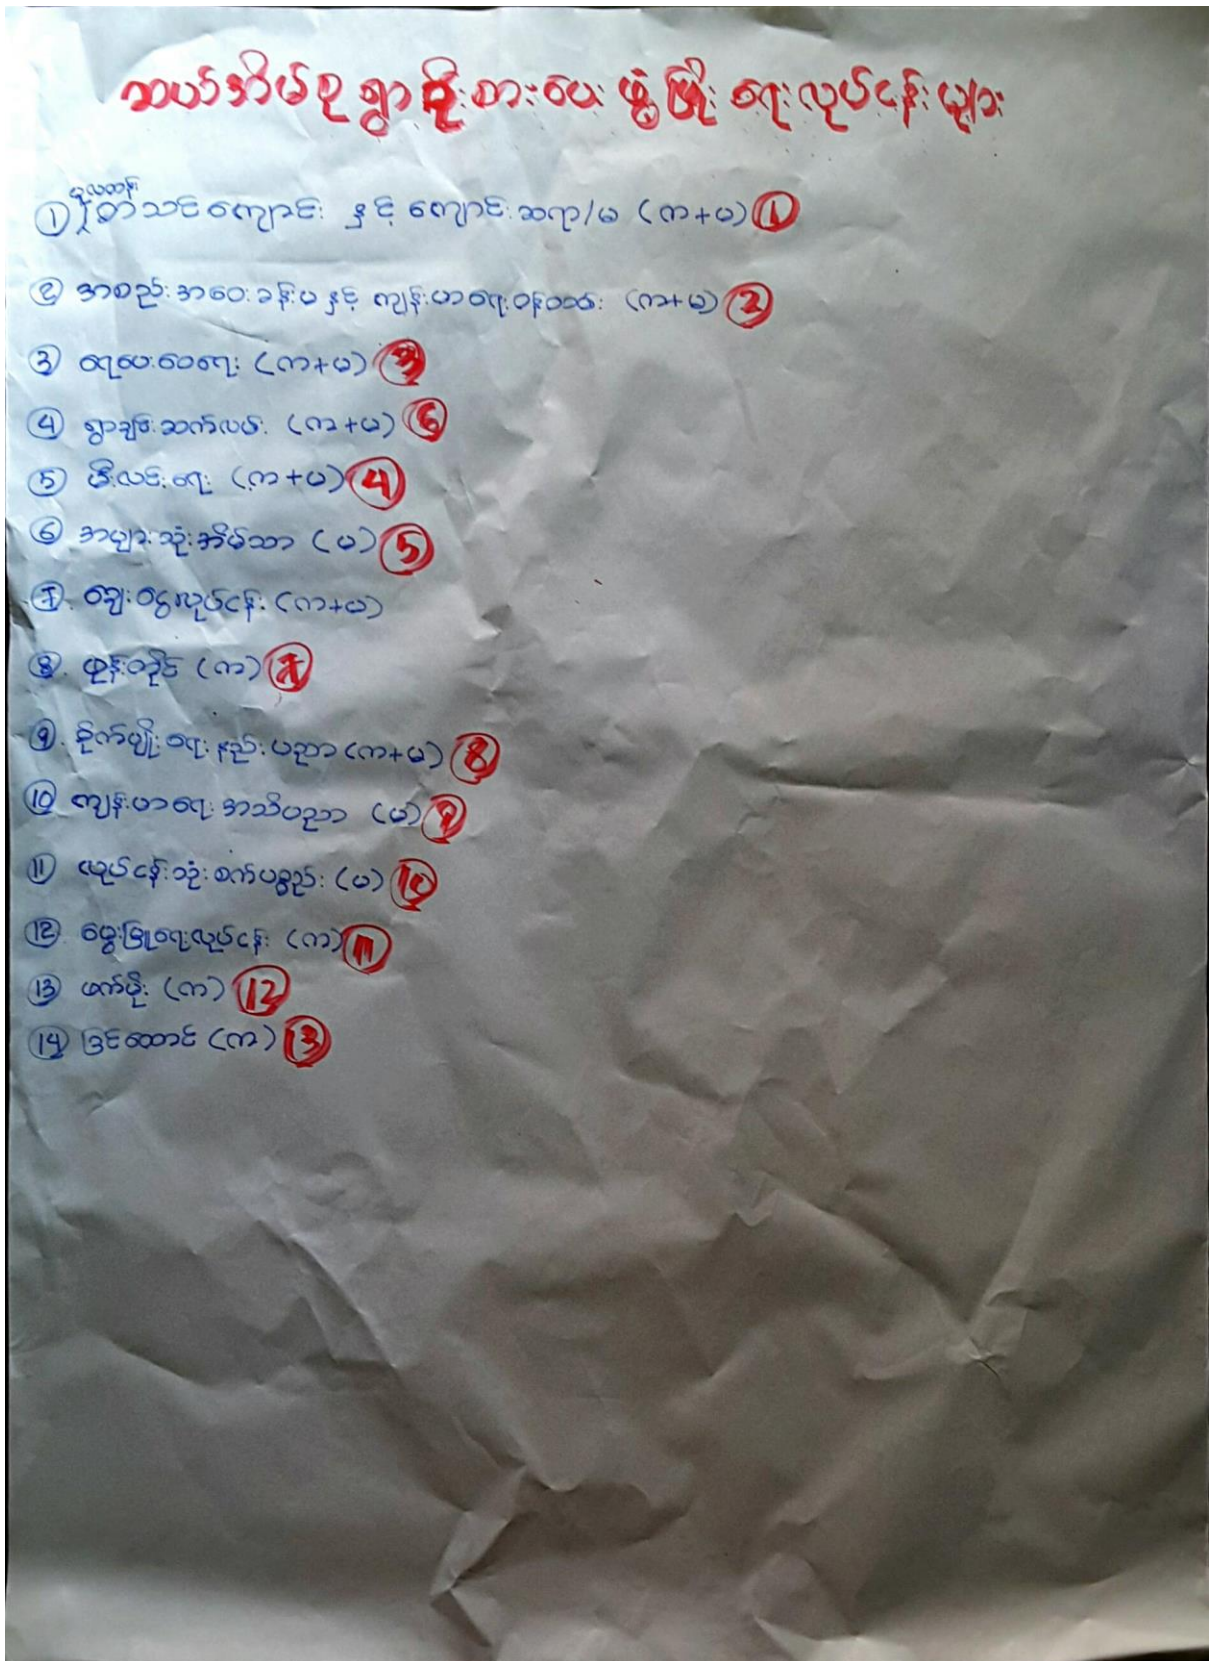 ဆယ်အိမ်စု ရွာ ဦးစားပေး ဖွံ့ဖြိုး ရေးလုပ်ငန်းများ
မူလတန်း
① စာသင်ကျောင်း နှင့် ကျောင်းဆရာ/မ (က+မ) ①
② အစည်းအဝေးခန်းမ နှင့် ကျန်းမာရေးဝန်ထမ်း (က+မ) ②
③ ရေပေးဝေရေး (က+မ) ③
④ ရွာချင်းဆက်လမ်း (က+မ) ⑥
⑤ မီးလင်းရေး (က+မ) ④
⑥ အများသုံးအိမ်သာ (မ) ⑤
⑦ ချေးငွေလုပ်ငန်း (က+မ)
⑧ ဖုန်းတိုင် (က) ⑦
⑨ စိုက်ပျိုးရေးနည်းပညာ (က+မ) ⑧
⑩ ကျန်းမာရေးအသိပညာ (မ) ⑨
⑪ လုပ်ငန်းသုံးစက်ပစ္စည်း (မ) ⑩
⑫ မွေးမြူရေးလုပ်ငန်း (က) ⑪
⑬ ဖက်မိုး (က) ⑫
⑭ ခြင်ထောင် (က) ⑬